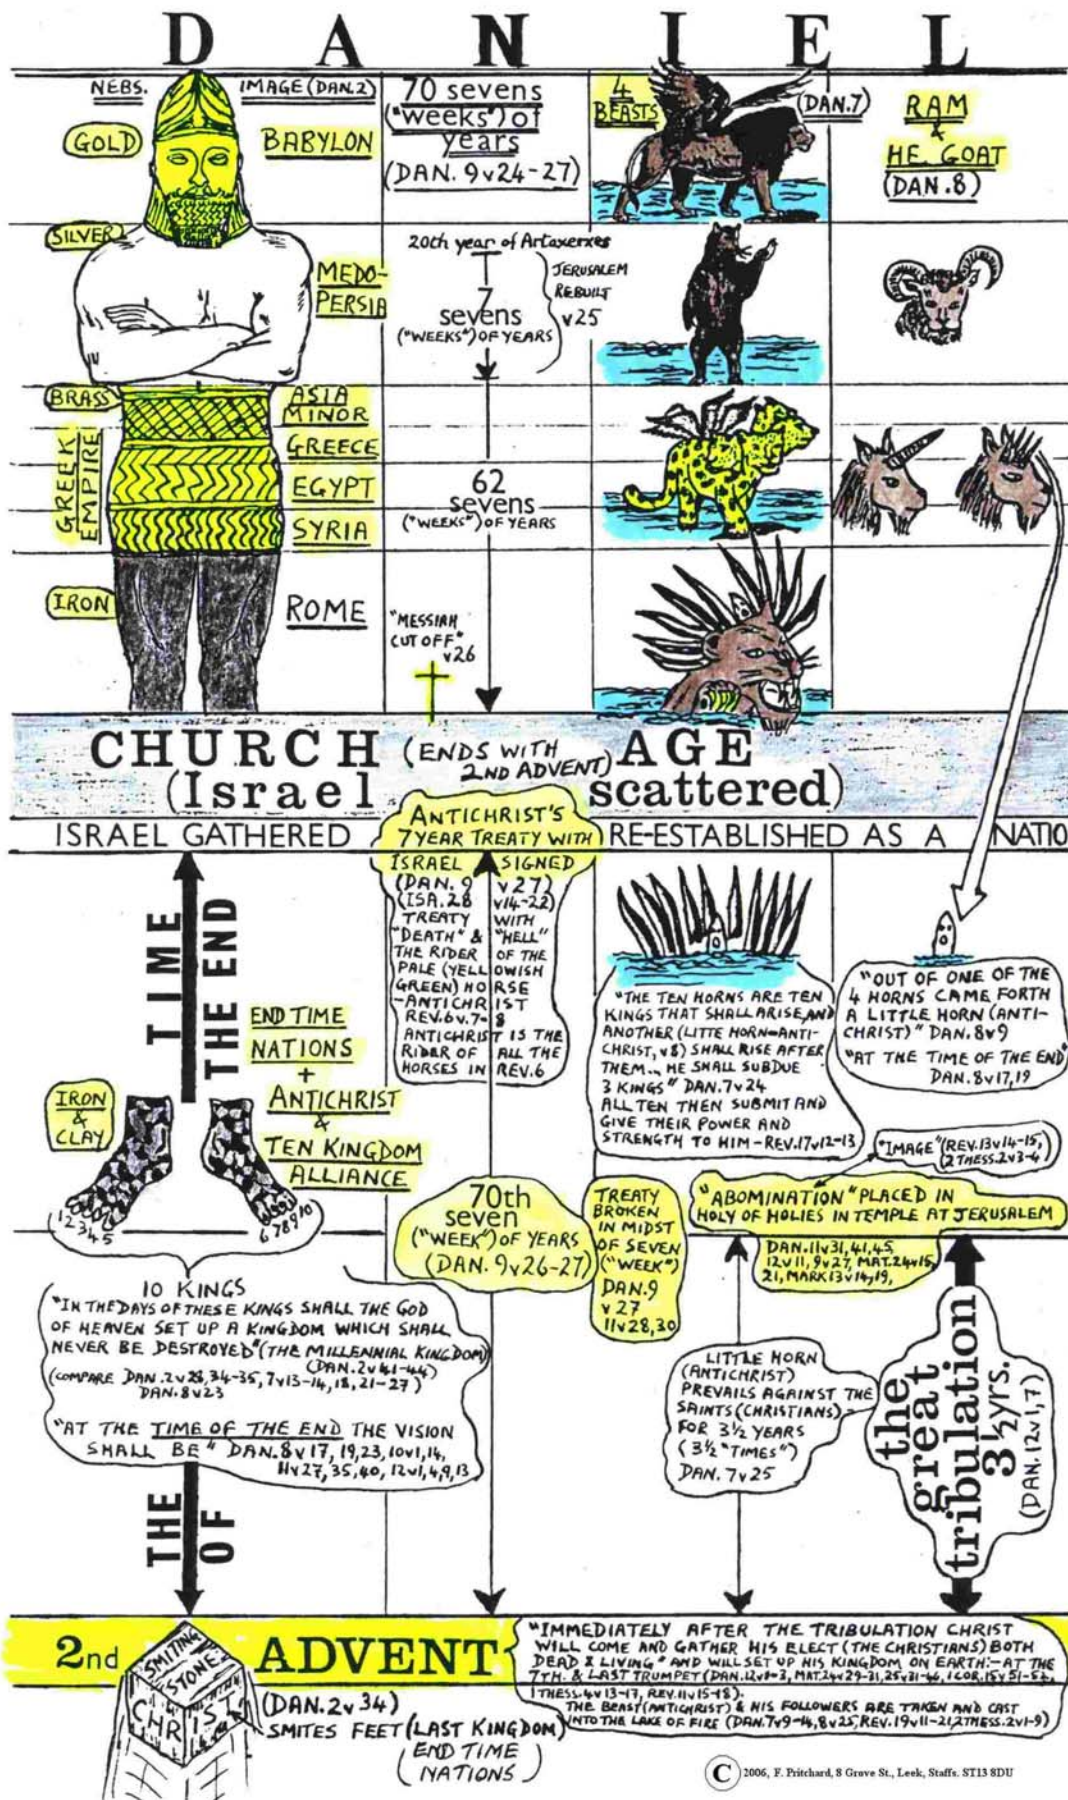 DANIEL
NEBS. IMAGE (DAN.2)
GOLD
BABYLON
SILVER
MEDO-
PERSIA
BRASS
ASIA
MINOR
GREEK
EMPIRE
GREECE
EGYPT
SYRIA
IRON
ROME
70 sevens
("weeks") of
years
(DAN. 9v24-27)
20th year of Artaxerxes
7
sevens
("WEEKS") OF YEARS
JERUSALEM
REBUILT
v25
62
sevens
("WEEKS") OF YEARS
"MESSIAH
CUT OFF"
v26
4
BEASTS
(DAN.7)
RAM
&
HE. GOAT
(DAN.8)
CHURCH (ENDS WITH 2ND ADVENT) AGE
(Israel scattered)
ISRAEL GATHERED
RE-ESTABLISHED AS A NATIO
ANTICHRIST'S
7 YEAR TREATY WITH
ISRAEL SIGNED
(DAN. 9 v27)
(ISA.28 v14-22)
TREATY WITH
"DEATH" & "HELL"
THE RIDER OF THE
PALE (YELLOWISH
GREEN) HORSE
-ANTICHRIST
REV.6v.7-8
ANTICHRIST IS THE
RIDER OF ALL THE
HORSES IN REV.6
TIME
THE END
END TIME
NATIONS
+
ANTICHRIST
&
TEN KINGDOM
ALLIANCE
IRON
&
CLAY
12345
678910
"THE TEN HORNS ARE TEN
KINGS THAT SHALL ARISE, AND
ANOTHER (LITTE HORN=ANTI-
CHRIST, v8) SHALL RISE AFTER
THEM... HE SHALL SUBDUE
3 KINGS" DAN.7v24
ALL TEN THEN SUBMIT AND
GIVE THEIR POWER AND
STRENGTH TO HIM-REV.17v12-13
"OUT OF ONE OF THE
4 HORNS CAME FORTH
A LITTLE HORN (ANTI-
CHRIST)" DAN.8v9
"AT THE TIME OF THE END"
DAN.8v17,19
"IMAGE" (REV.13v14-15,
(2THESS.2v3-4)
"ABOMINATION" PLACED IN
HOLY OF HOLIES IN TEMPLE AT JERUSALEM
DAN.11v31,41,45,
12v11, 9v27, MAT.24v15,
21, MARK13v14,19,
70th
seven
("WEEK") OF YEARS
(DAN. 9v26-27)
TREATY
BROKEN
IN MIDST
OF SEVEN
("WEEK")
DAN.9
v27
11v28,30
10 KINGS
"IN THE DAYS OF THESE KINGS SHALL THE GOD
OF HEAVEN SET UP A KINGDOM WHICH SHALL
NEVER BE DESTROYED" (THE MILLENNIAL KINGDOM)
(DAN.2v41-44)
(COMPARE DAN.2v28,34-35,7v13-14,18,21-27)
DAN.8v23
"AT THE TIME OF THE END THE VISION
SHALL BE" DAN.8v17,19,23,10v1,14,
11v27,35,40,12v1,4,9,13
LITTLE HORN
(ANTICHRIST)
PREVAILS AGAINST THE
SAINTS (CHRISTIANS)
FOR 3½ YEARS
(3½ "TIMES")
DAN. 7v25
the
great
tribulation
3½yrs.
(DAN.12v1,7)
THE
OF
2nd ADVENT
SMITING
STONE
CHRIST
(DAN.2v34)
SMITES FEET (LAST KINGDOM)
(END TIME
NATIONS)
"IMMEDIATELY AFTER THE TRIBULATION CHRIST
WILL COME AND GATHER HIS ELECT (THE CHRISTIANS) BOTH
DEAD & LIVING" AND WILL SET UP HIS KINGDOM ON EARTH:-AT THE
7TH. & LAST TRUMPET (DAN.12v1-3, MAT.24v29-31,25v31-46, 1COR.15v51-52,
1THESS.4v13-17, REV.11v15-18).
THE BEAST (ANTICHRIST) & HIS FOLLOWERS ARE TAKEN AND CAST
INTO THE LAKE OF FIRE (DAN.7v9-14,8v25,REV.19v11-21,2THESS.2v1-9)
C 2006, F. Pritchard, 8 Grove St., Leek, Staffs. ST13 8DU